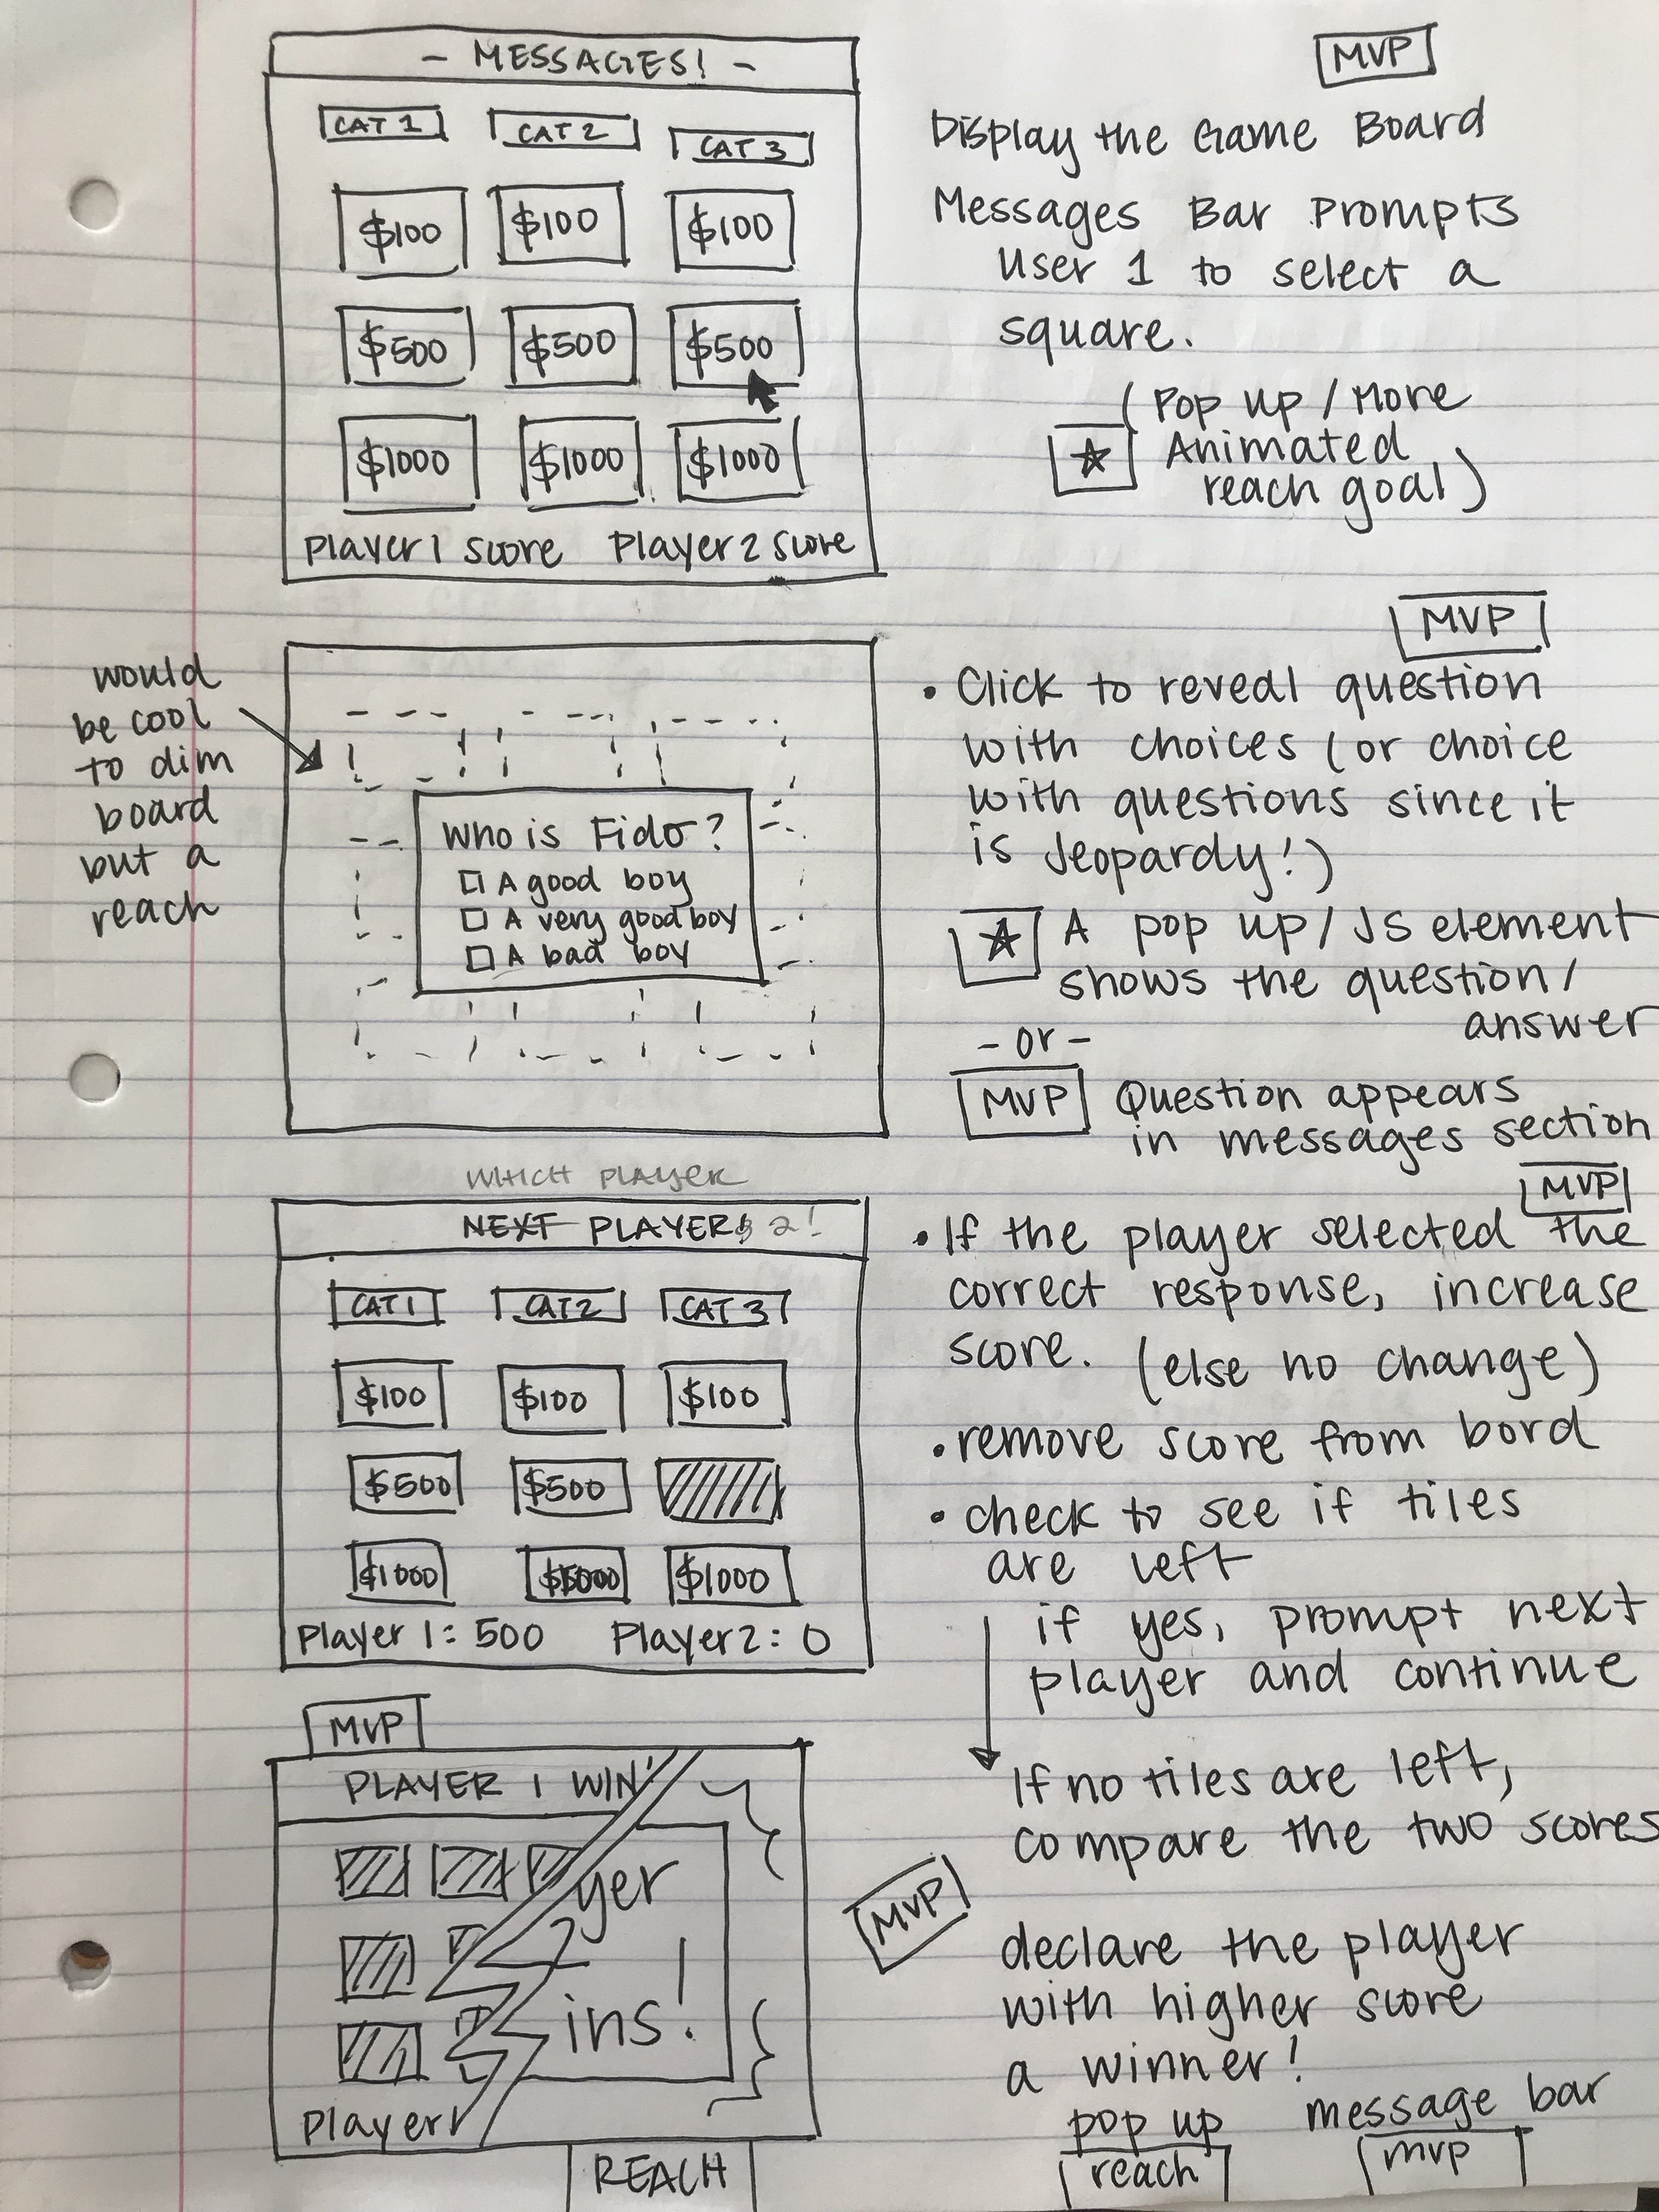 - MESSAGES! -
CAT 1 CAT 2 CAT 3
$100 $100 $100
$500 $500 $500
$1000 $1000 $1000
Player 1 score Player 2 score
MVP
Display the Game Board
Messages Bar Prompts
User 1 to select a
square.
(Pop up / More
Animated
reach goal)
would
be cool
to dim
board
but a
reach
Who is Fido?
A good boy
A very good boy
A bad boy
MVP
• Click to reveal question
with choices (or choice
with questions since it
is Jeopardy!)
A pop up / JS element
shows the question /
answer
- or -
MVP Question appears
in messages section
WHICH PLAYER
NEXT PLAYER 2!
CAT 1 CAT 2 CAT 3
$100 $100 $100
$500 $500
$1000 $1000
Player 1: 500 Player 2: 0
MVP
• If the player selected the
correct response, increase
score. (else no change)
• remove score from bord
• check to see if tiles
are left
if yes, prompt next
player and continue
If no tiles are left,
compare the two scores
MVP
declare the player
with higher score
a winner!
pop up message bar
reach mvp
MVP
PLAYER 1 WIN
yer
ins!
Player
REACH